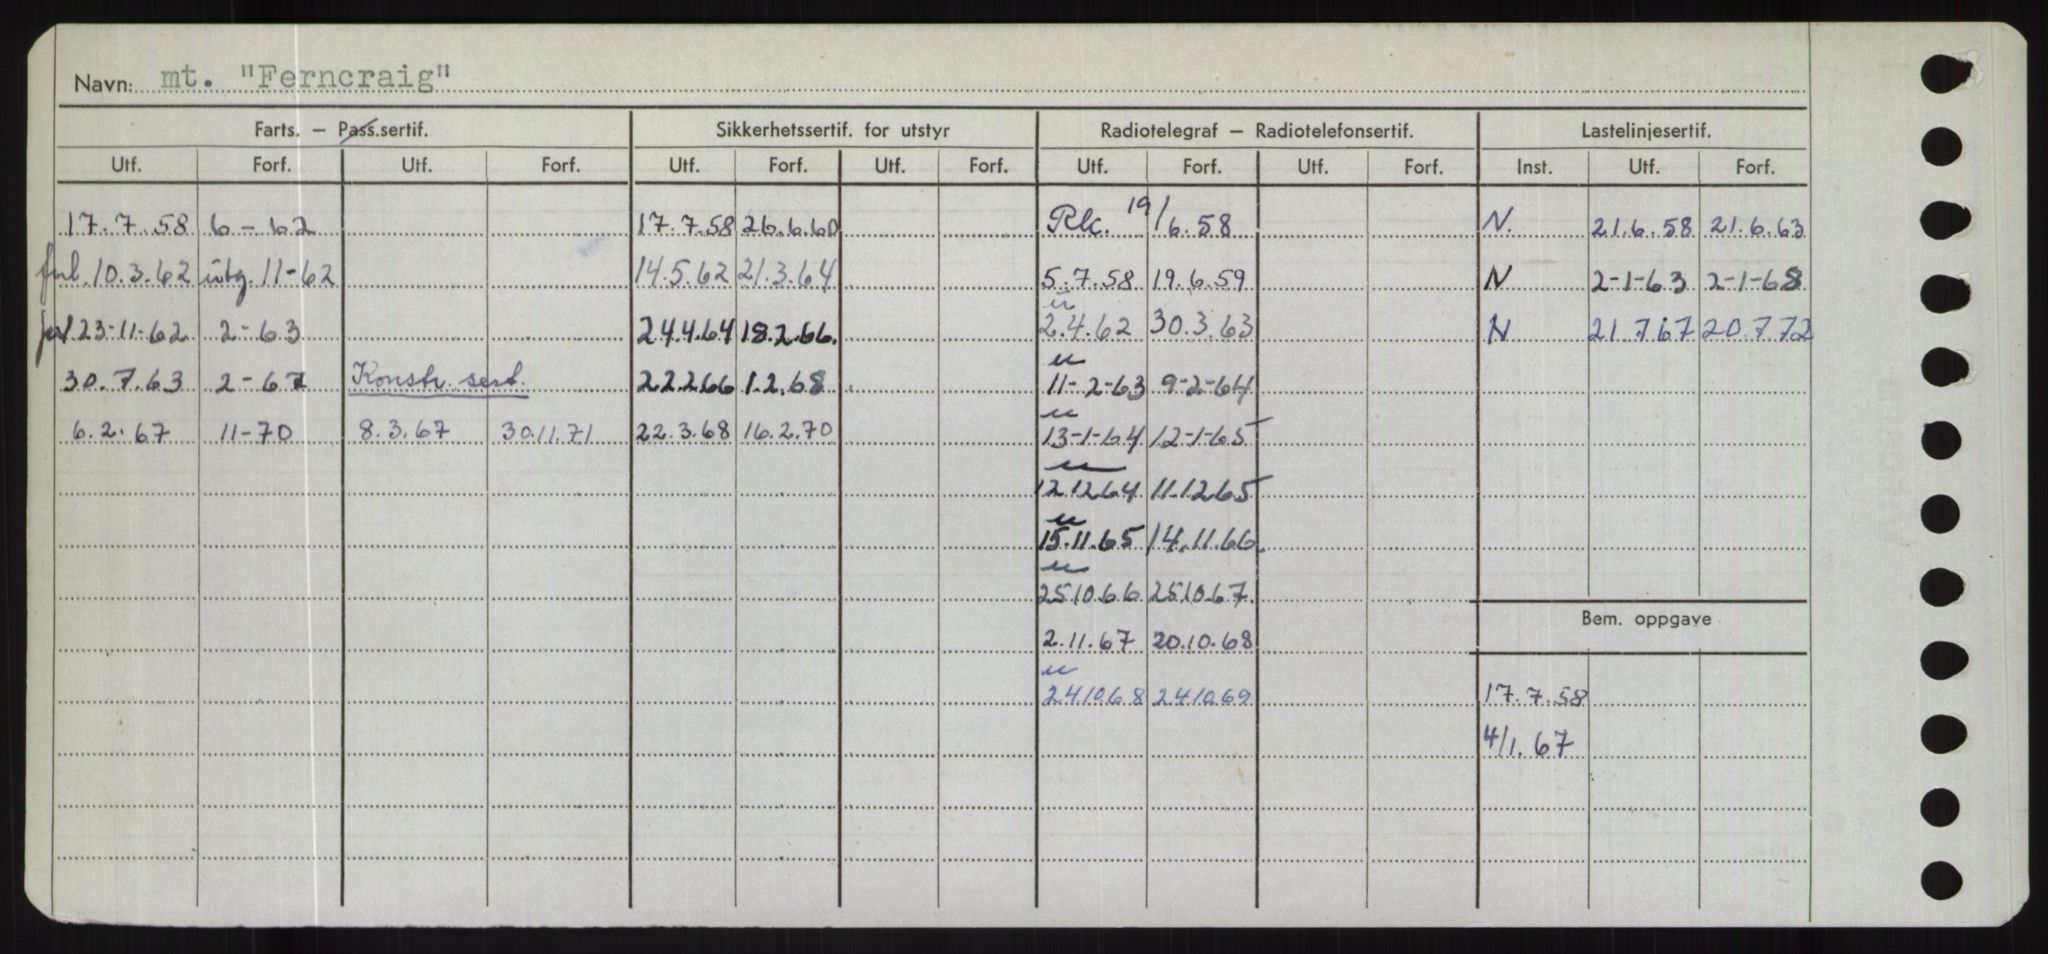 Navn: mt. "Ferncraig"
Farts. – Pass.sertif. Sikkerhetssertif. for utstyr Radiotelegraf – Radiotelefonsertif. Lastelinjesertif.
Utf. Forf. Utf. Forf. Utf. Forf. Utf. Forf. Utf. Forf. Utf. Forf. Inst. Utf. Forf.
17.7.58 6-62 17.7.58 26.6.60 Rk. 19/6.58 N. 21.6.58 21.6.63
10.3.62 utg. 11-62 14.5.62 21.3.64 5.7.58 19.6.59 N 2-1-63 2-1-68
23-11-62 2-63 24.4.64 18.2.66. 2.4.62 30.3.63 N 21.7.67 20.7.72
30.7.63 2-67 Konstr. sert. 22.2.66 1.2.68 11-2-63 9-2-64
6.2.67 11-70 8.3.67 30.11.71 22.3.68 16.2.70 13-1-64 12-1-65
12.12.64 11.12.65
15.11.65 14.11.66.
25.10.66 25.10.67.
Bem. oppgave
2.11.67 20.10.68
24.10.68 24.10.69 17.7.58
4/1.67